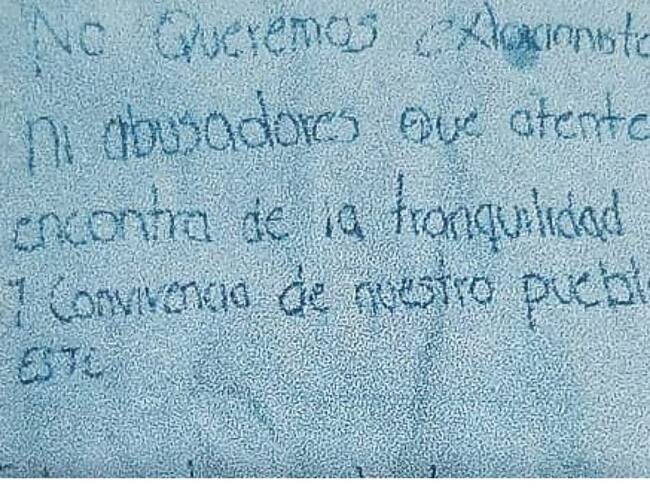 No Queremos
ni abusadores que atente
encontra de la tranquilidad
Y Convivencia de nuestro puebl
ESTE